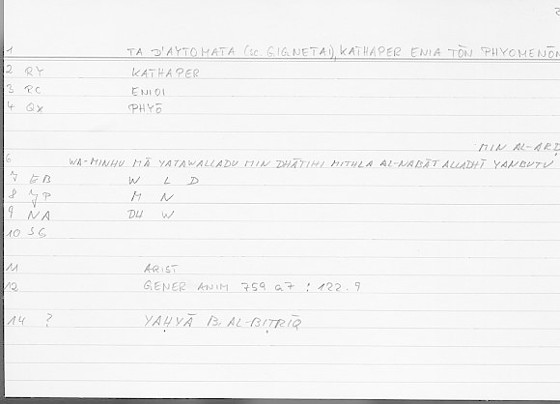 1 TA D'AYTOMATA (sc. GIGNETAI), KATHAPER ENIA TŌN PHYOMENŌN
2 RY KATHAPER
3 RC ENIOI
4 QX PHYŌ
MIN AL-ARḌ
6 WA-MINHU MĀ YATAWALLADU MIN DHĀTIHI MITHLA AL-NABĀT ALLADHĪ YANBUTU
7 EB W L D
8 JP M N
9 NA DH W
10 SG
11 ARIST
12 GENER ANIM 759 a7 : 122.9
14 ? YAḤYĀ B. AL-BIṬRĪQ